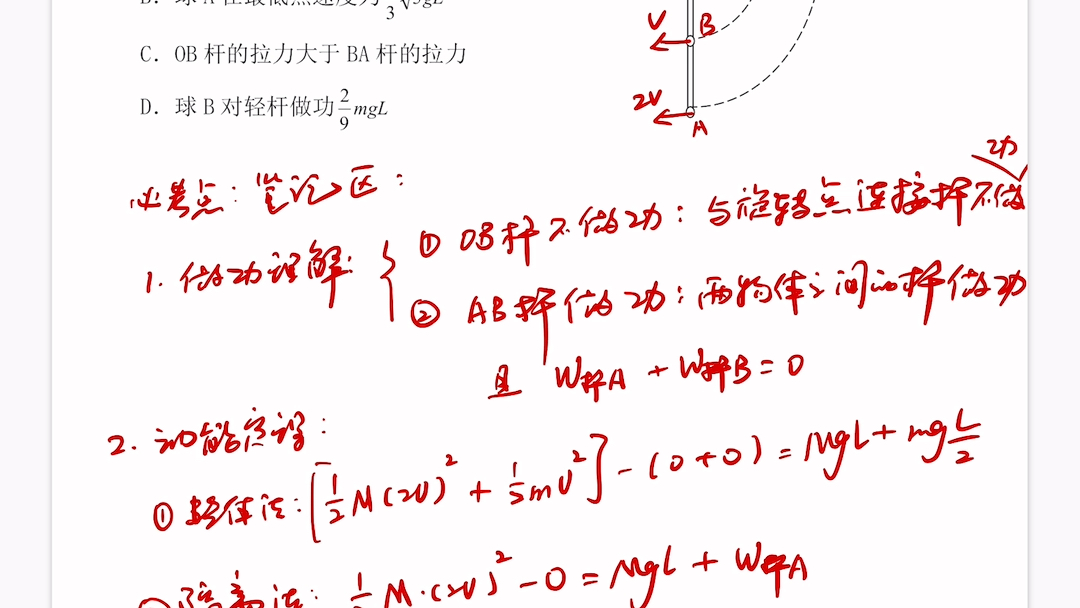 C. OB 杆的拉力大于 BA 杆的拉力
D. 球 B 对轻杆做功 2/9 mgL
V B
2V A
必考点：笔记区：
1. 做功理解：
① OB杆不做功：与旋转点连接杆不做功
② AB杆做功：两物体之间的杆做功
且 W杆A + W杆B = 0
2. 动能定理：
① 整体法：[½M(2v)² + ½mv²] - (0+0) = MgL + mg L/2
② 隔离法：½M·(2v)² - 0 = MgL + W杆A